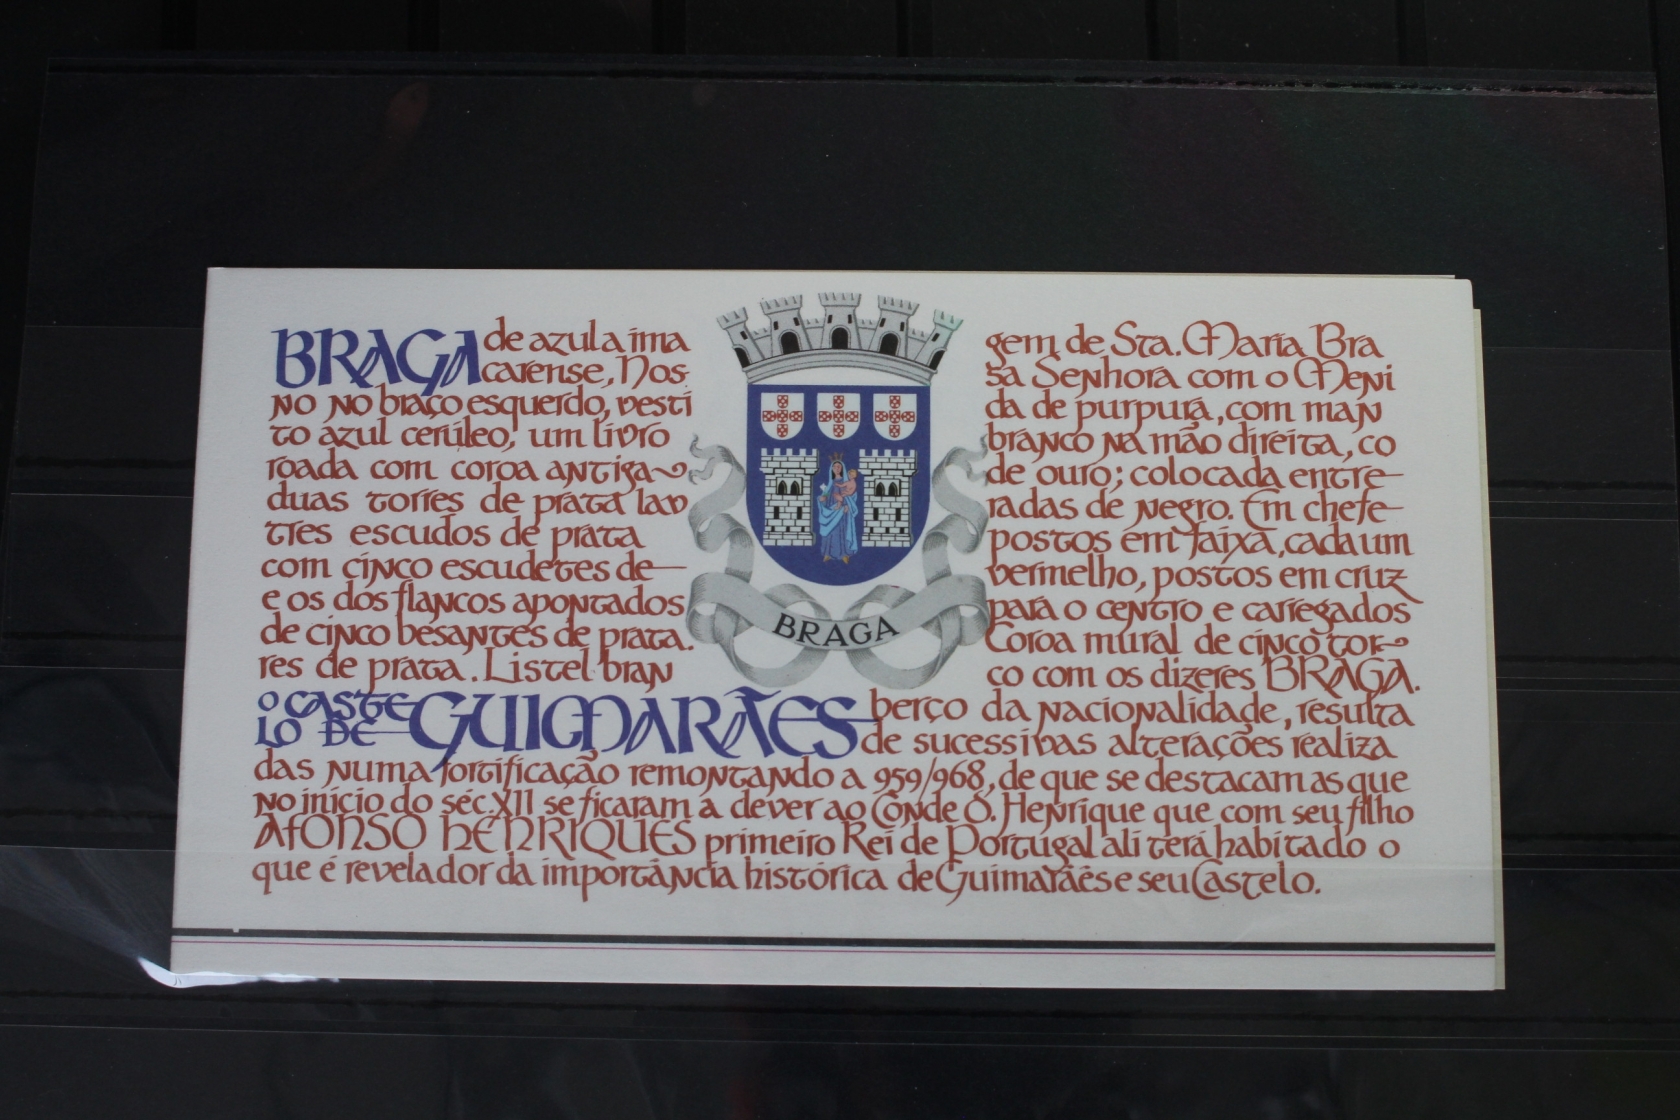 BRAGA de azul a ima gem de Sta. Maria Bra
carense, Nos sa Senhora com o Meni
no no braço esquerdo, vesti da de purpura, com man
to azul cerúleo, um livro branco na mão direita, co
roada com coroa antiga de ouro; colocada entre
duas torres de prata lav radas de negro. Em chefe
tres escudos de prata postos em faixa, cada um
com cinco escudetes de vermelho, postos em cruz
e os dos flancos apontados para o centro e carregados
de cinco besantes de prata. Coroa mural de cinco tor
res de prata. Listel bran co com os dizeres BRAGA.
BRAGA
O CASTE
LO DE GUIMARÃES berço da nacionalidade, resulta
de sucessivas alterações realiza
das numa fortificação remontando a 959/968, de que se destacam as que
no início do séc. XII se ficaram a dever ao Conde D. Henrique que com seu filho
AFONSO HENRIQUES primeiro Rei de Portugal ali terá habitado o
que é revelador da importância histórica de Guimarães e seu Castelo.